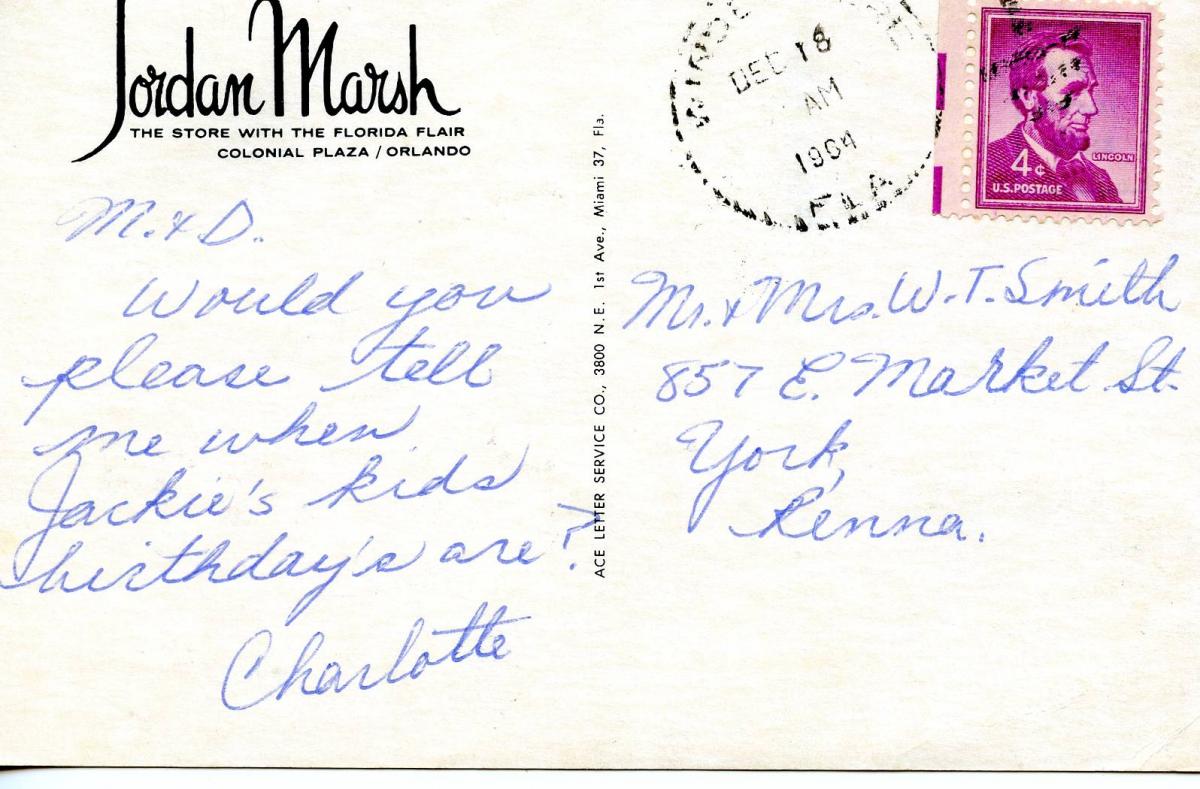 Jordan Marsh
THE STORE WITH THE FLORIDA FLAIR
COLONIAL PLAZA / ORLANDO
M. & D.
Would you
please tell
me when
Jackie's kids
birthday's are?
Charlotte
ACE LETTER SERVICE CO., 3800 N. E. 1st Ave., Miami 37, Fla.
DEC 18
AM
1964
FLA
4¢
LINCOLN
U.S. POSTAGE
Mr. & Mrs. W. T. Smith
857 E. Market St.
York,
Penna.